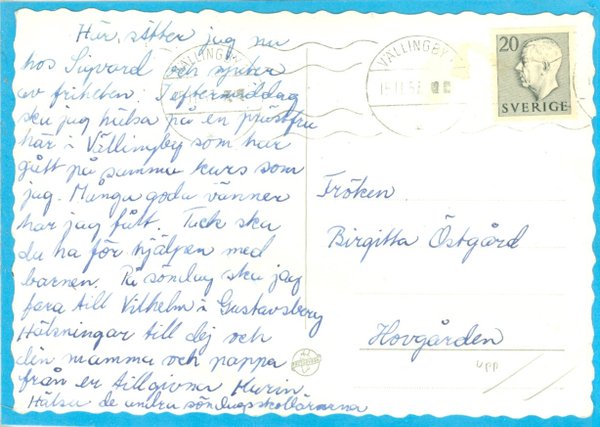 Här sitter jag nu
hos Sigvard och njuter
av friheten. I eftermiddag
ska jag hälsa på en prästfru
här i Vällingby som har
gått på samma kurs som
jag. Många goda vänner
har jag fått. Tack ska
du ha för hjälpen med
barnen. På söndag ska jag
fara till Vilhelm i Gustavsberg
Hälsningar till dej och
din mamma och pappa
från er tillgivna Karin
Hälsa de andra söndagsskollärarna
VÄLLINGBY
VÄLLINGBY
20
SVERIGE
Fröken
Birgitta Östgård
Hovgården
UPP